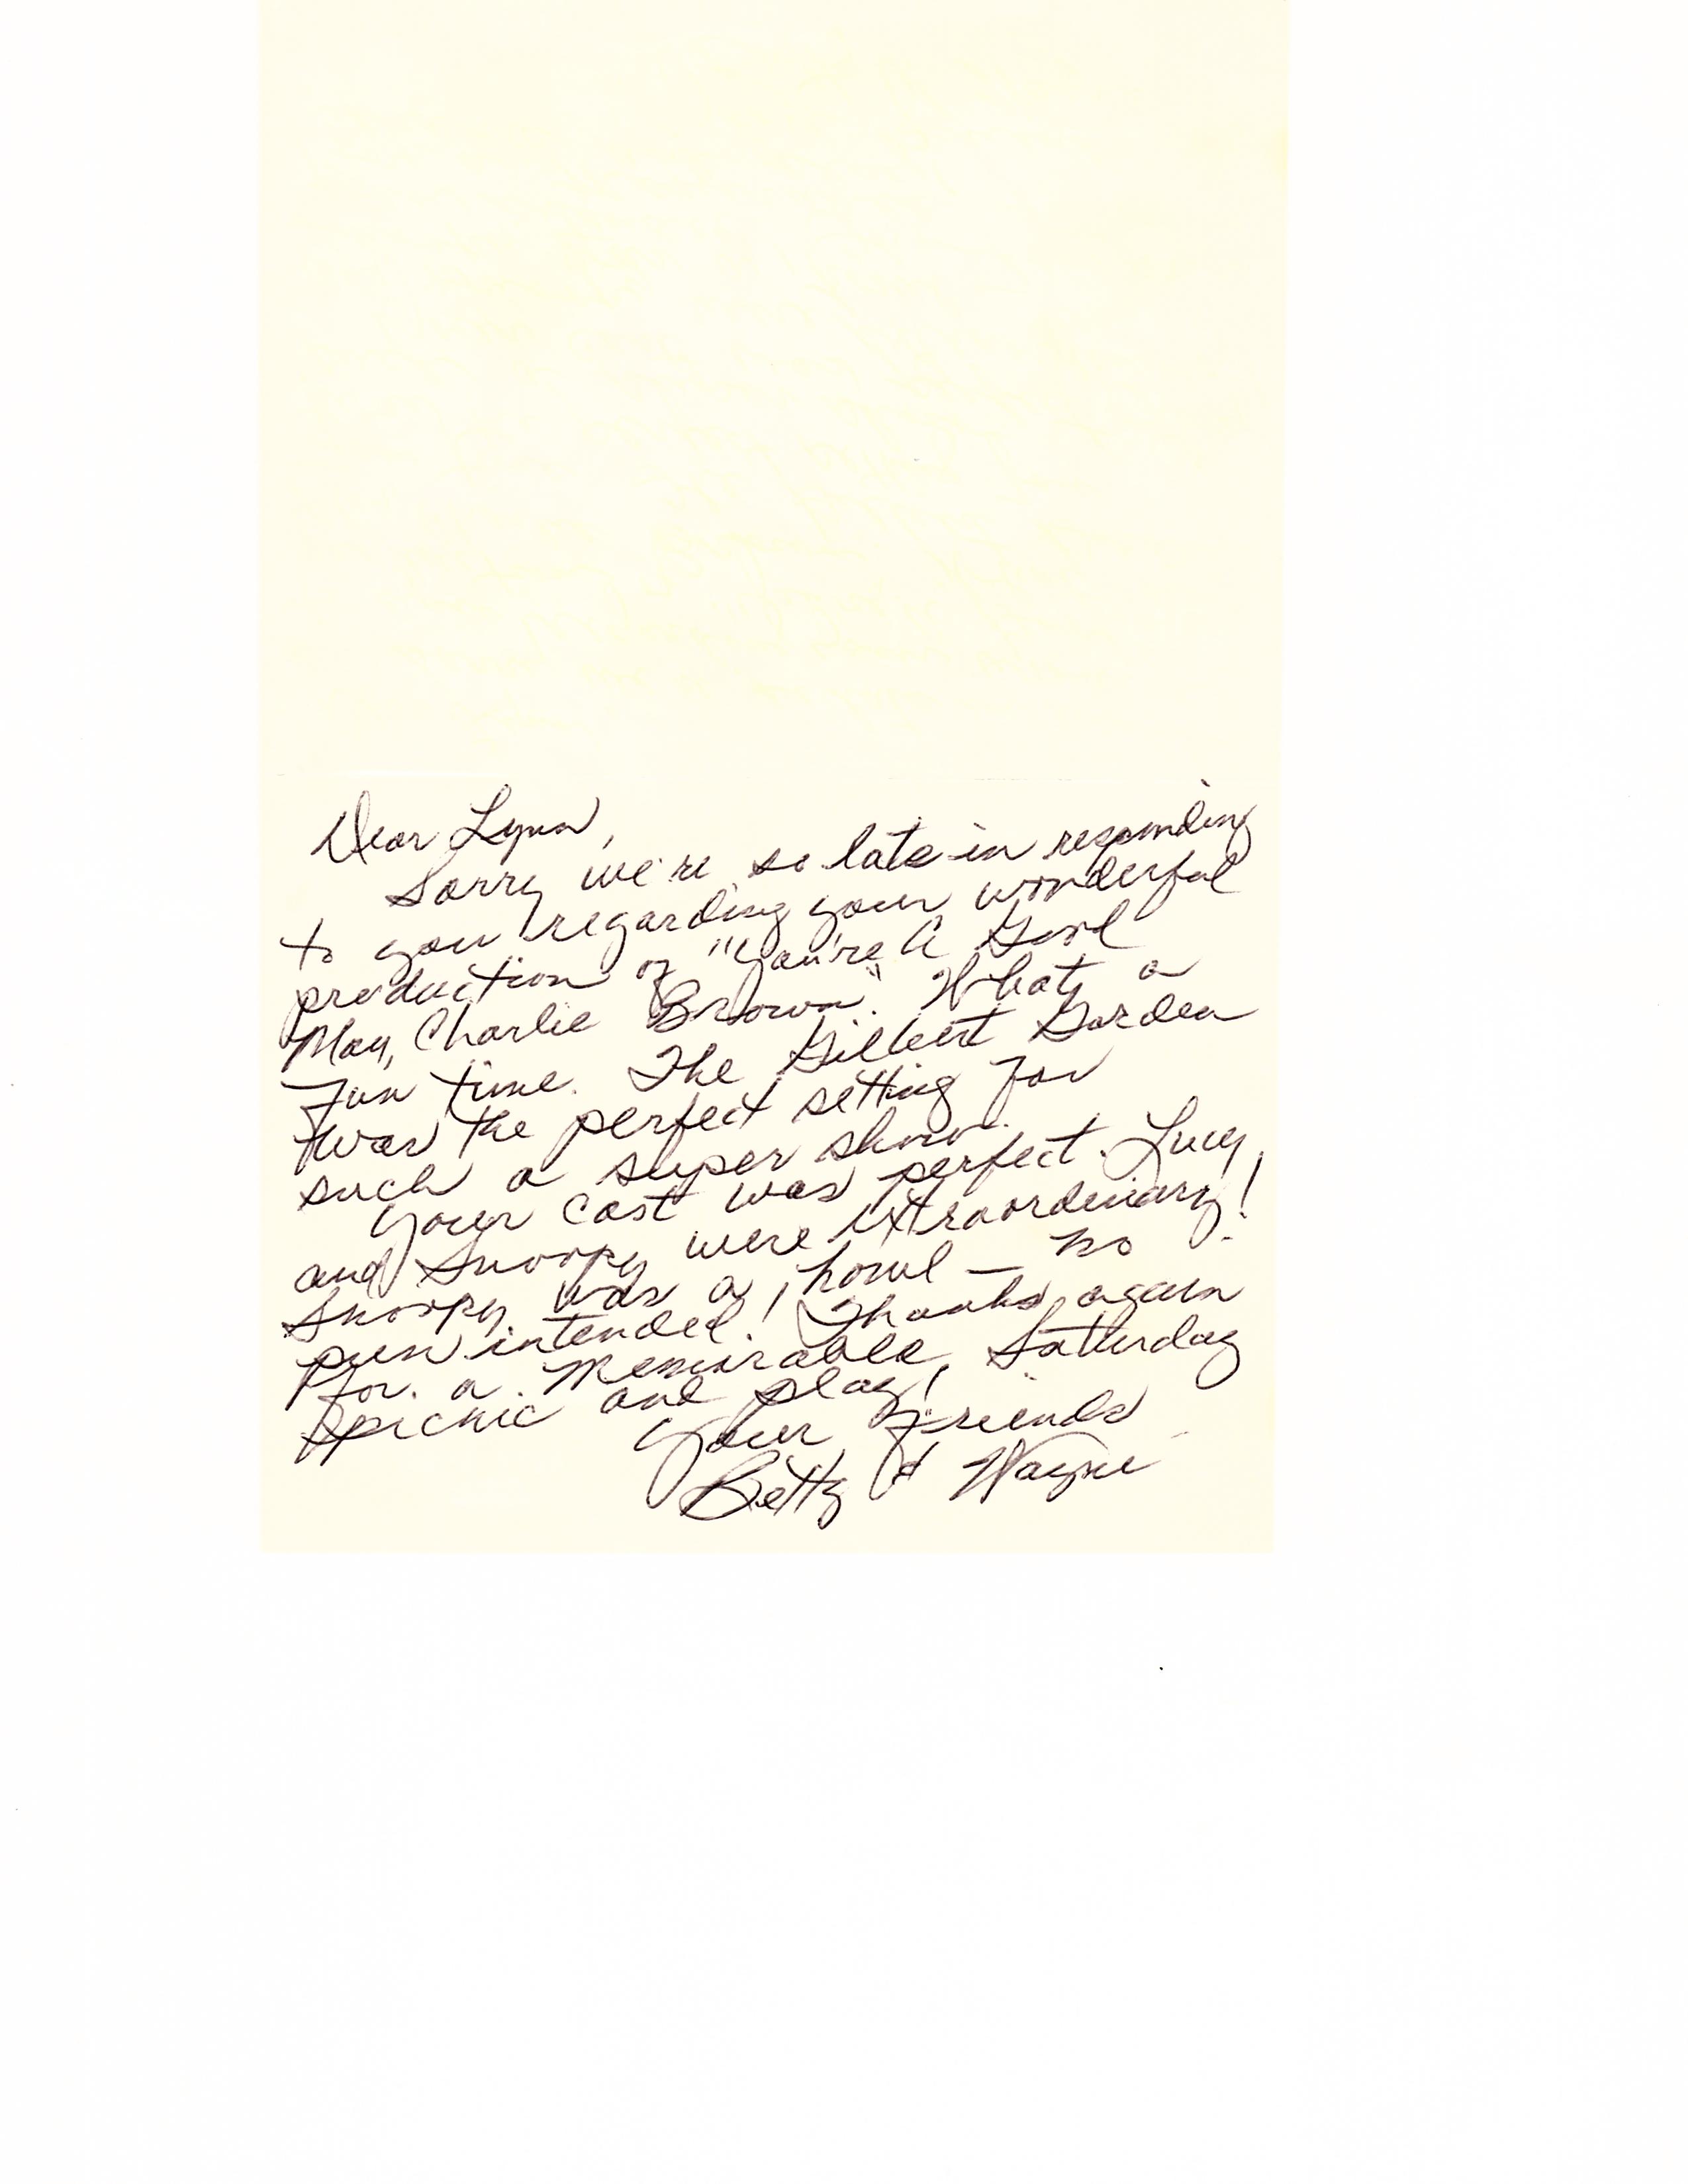 Dear Lynn,
Sorry we're so late in responding
to you regarding your wonderful
production of "You're A Good
Man, Charlie Brown". What a
fun time. The Gilbert Garden
was the perfect setting for
such a super show.
Your cast was perfect. Lucy
and Snoopy were extraordinary!
Snoopy was a howl — no
pun intended! Thanks again
for a memorable Saturday
picnic and play!
Your friends
Betty & Wayne